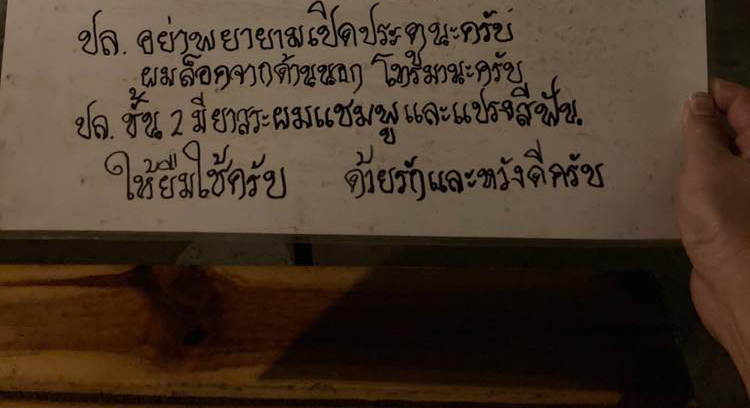 ปล. อย่าพยายามเปิดประตูนะครับ
ผมล็อคจากด้านนอก โทรมานะครับ
ปล. ชั้น 2 มียาสระผมแชมพูและแปรงสีฟัน.
ให้ยืมใช้ครับ ด้วยรักและหวังดีครับ